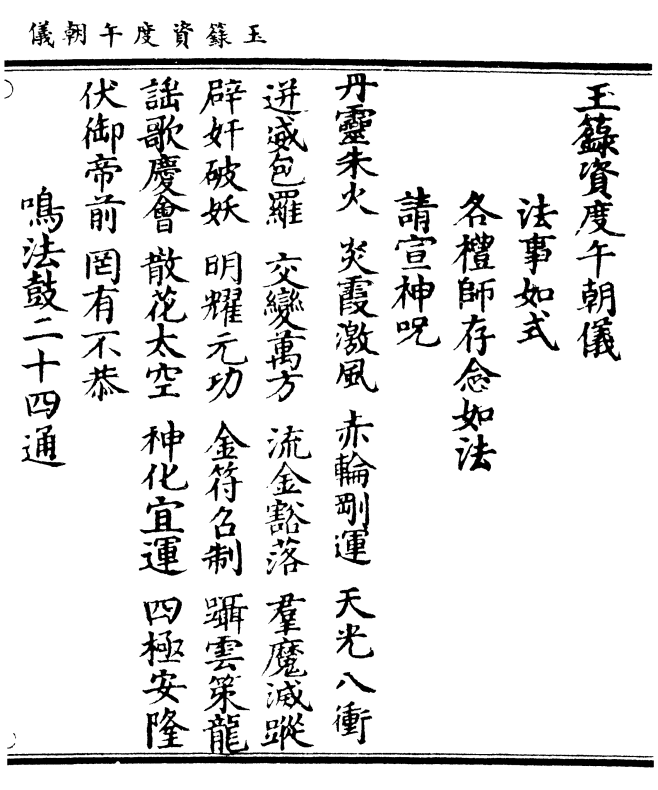 玉籙資度午朝儀
玉籙資度午朝儀
法事如式
各禮師存念如法
請宣神呪
丹靈朱火 炎霞激風 赤輪剛運 天光八衝
迸威包羅 交變萬方 流金豁落 羣魔滅蹤
辟奸破妖 明耀元功 金符召制 躡雲策龍
謠歌慶會 散花太空 神化宜運 四極安隆
伏御帝前 罔有不恭
鳴法鼓二十四通